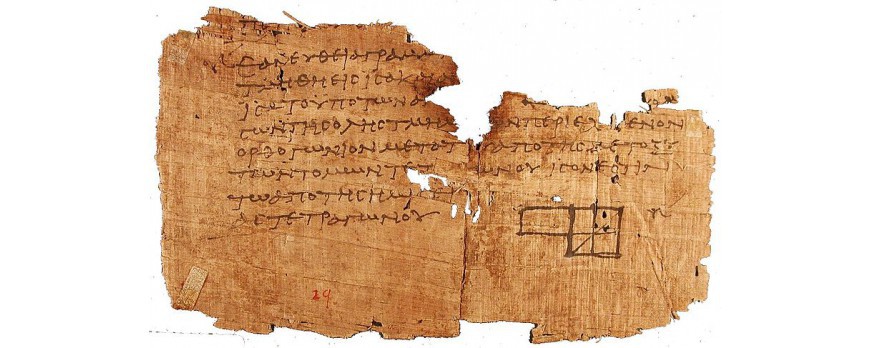 ΕΑΝΕΥΘΕΙΑΓΡΑΜΜ
ΤΜΗΘΗΕΙϹΙϹΑΚΑΙΑ
ΙϹΑΤΟΥΠΟΤΩΝΑ
ΤΩΝΤΗϹΟΛΗϹΤΜΗ ΝΠΕΡΙΕΧΟΜΕΝΟΝ
ΟΡΘΟΓΩΝΙΟΝΜΕΤΑΤΟΥ ΑΠΟΤΗϹΜΕΤΟΞΥ
ΤΩΝΤΟΜΩΝΤΕΤ ΩΝΟΥΙϹΟΝΕϹΤΙΝ
ΤΩΑΠΟΤΗϹΗΜ
ΑϹΤΕΤΡΑΓΩΝΟΥ
29